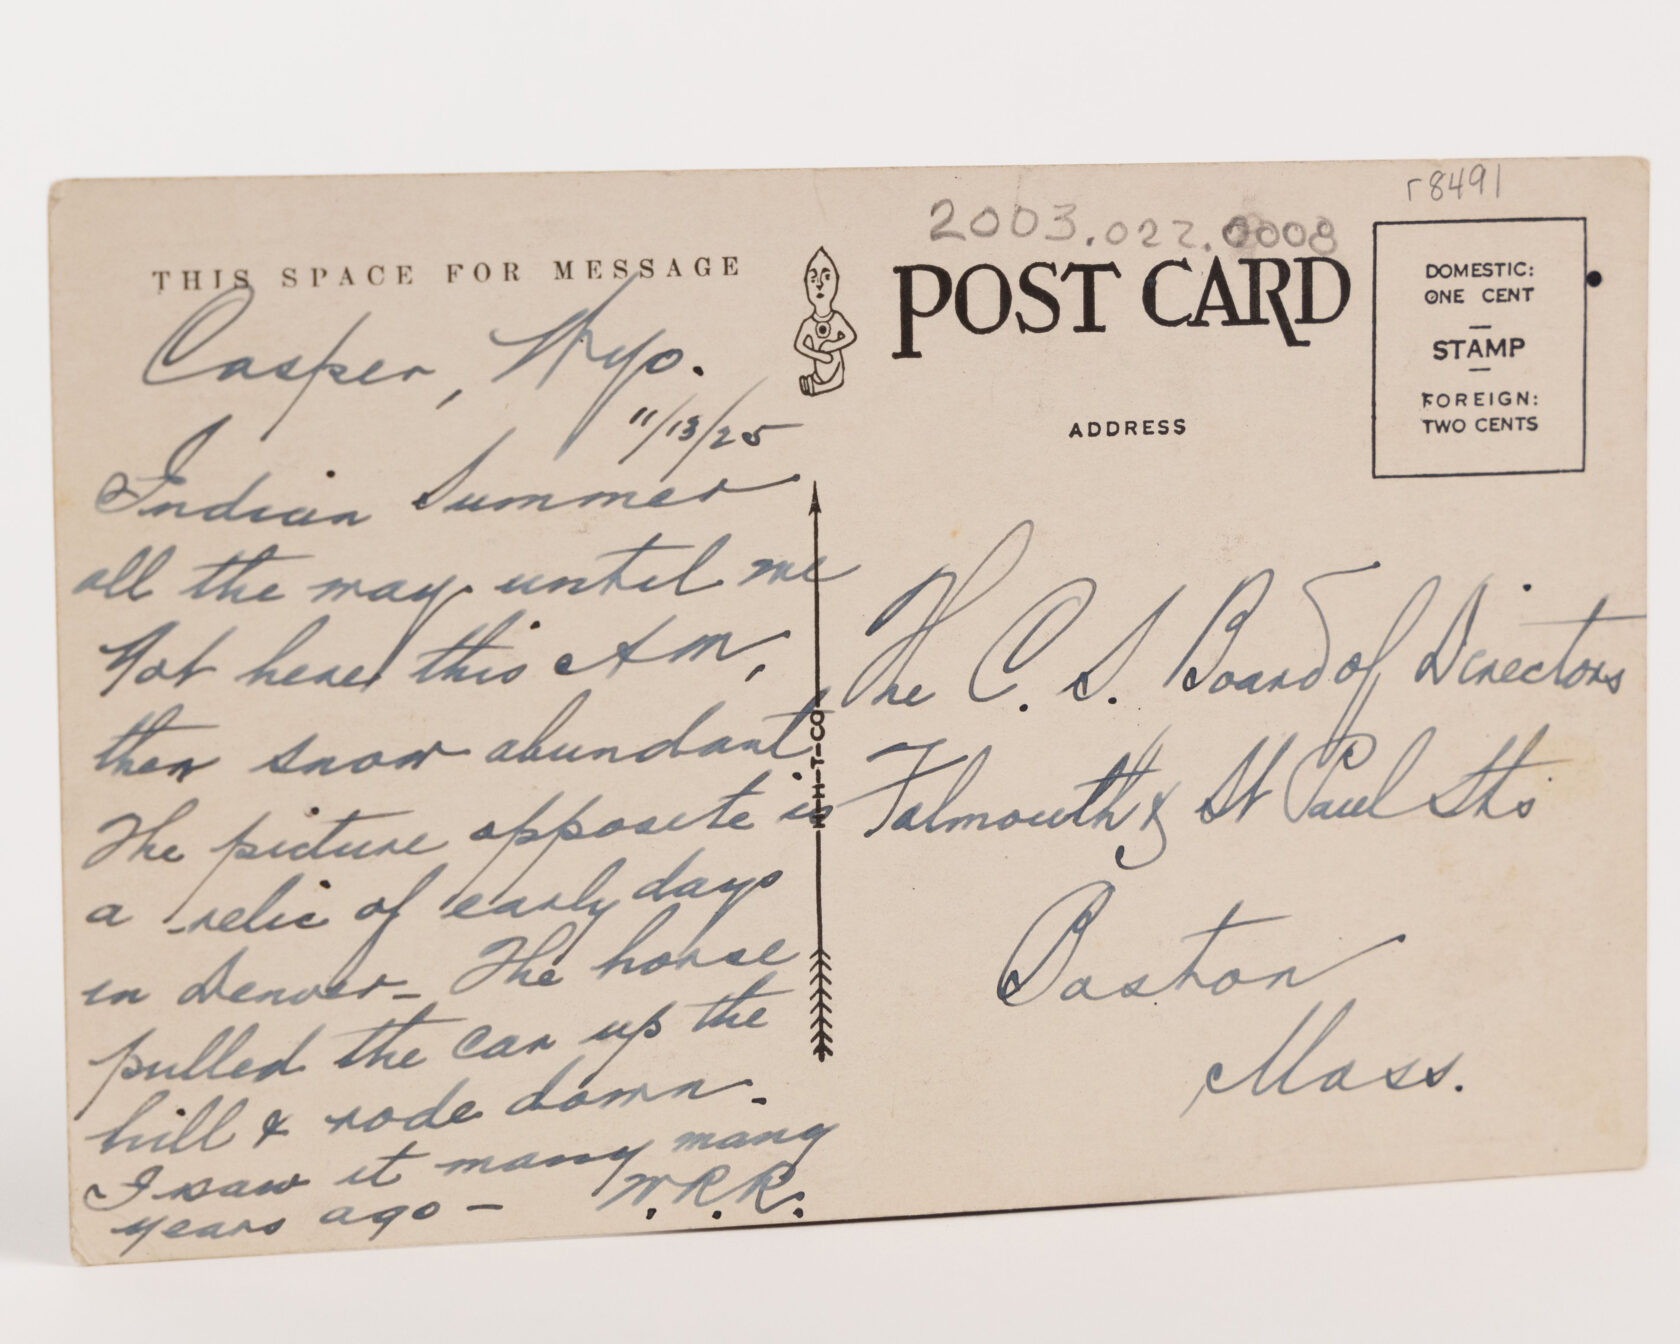 THIS SPACE FOR MESSAGE
Casper, Wyo.
11/13/25
Indian Summer
all the way until we
got here this A M,
then snow abundant
The picture opposite is
a relic of early days
in Denver - The horse
pulled the car up the
hill & rode down.
I saw it many many
years ago - W.R.R.
2003.022.0008
r8491
POST CARD
ADDRESS
DOMESTIC:
ONE CENT
STAMP
FOREIGN:
TWO CENTS
H-H-T-CO
The C. S. Board of Directors
Falmouth & St Paul Sts
Boston
Mass.